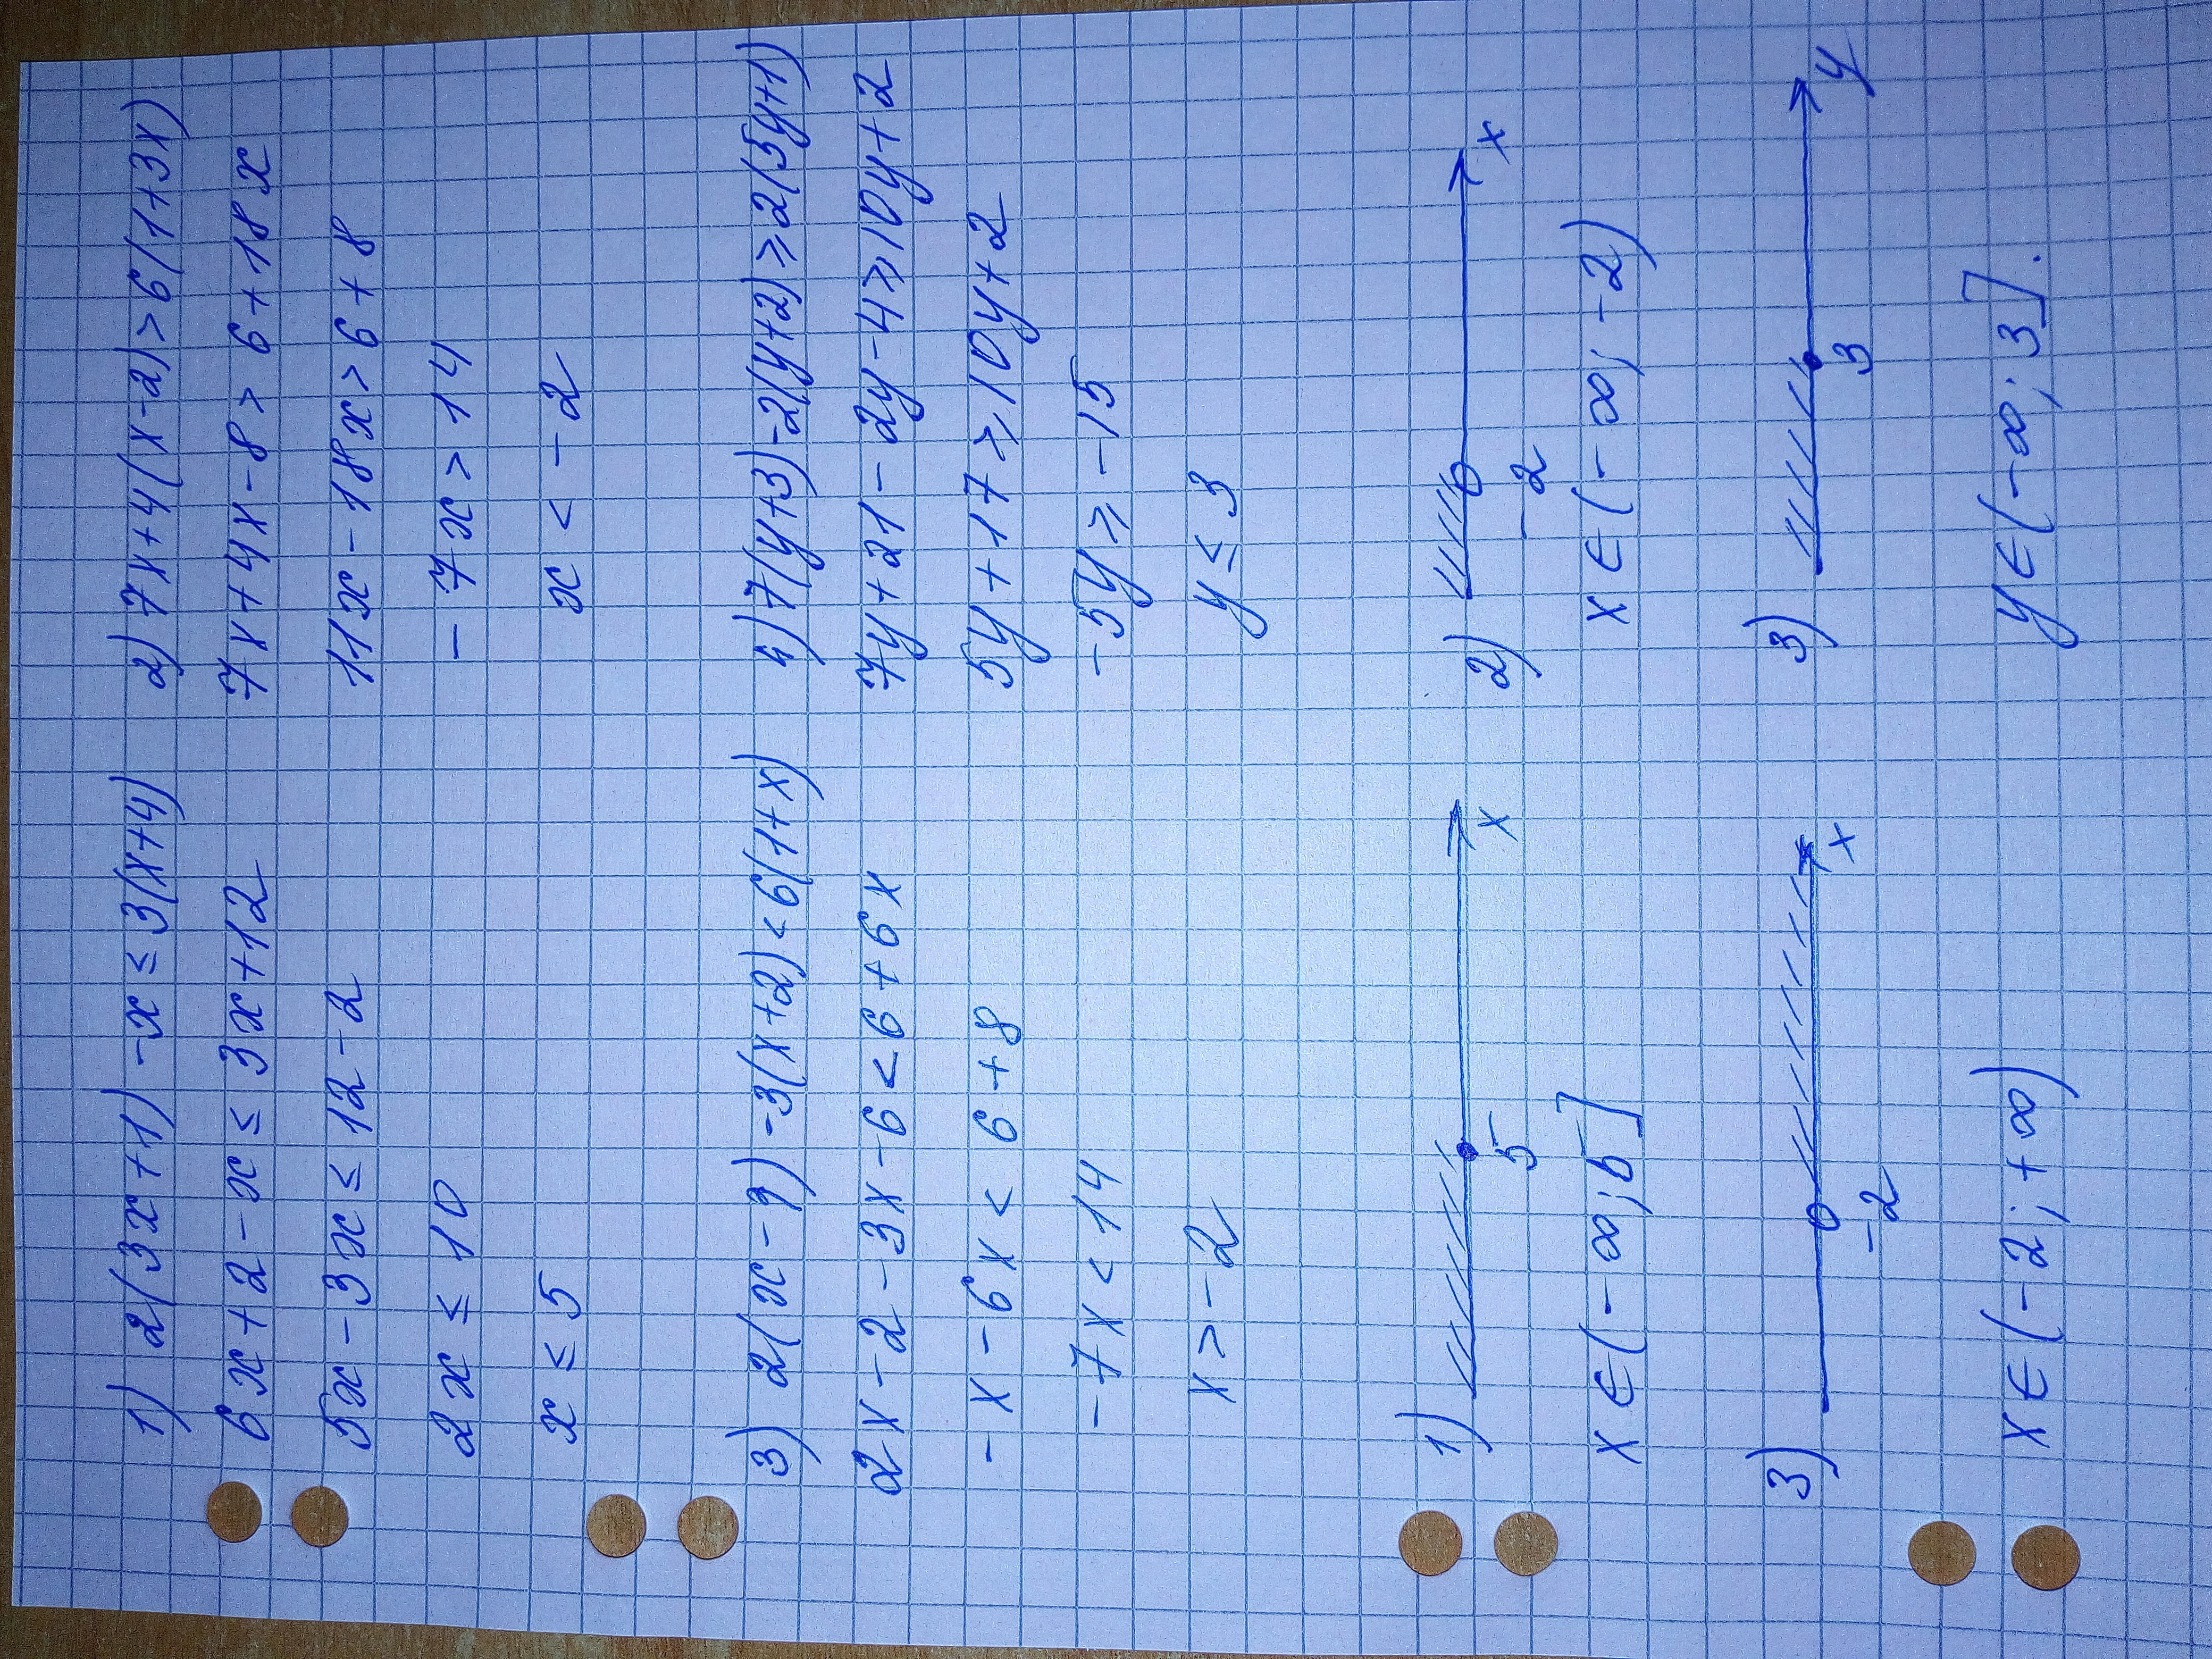 1) 2(3x+1) -x ≤ 3(x+4)
6x+2-x ≤ 3x+12
5x-3x ≤ 12-2
2x ≤ 10
x ≤ 5
2) 7x+4(x-2)>6(1+3x)
7x+4x-8 > 6+18x
11x-18x>6+8
-7x>14
x < -2
3) 2(x-1) -3(x+2)<6(1+x)
2x-2-3x-6<6+6x
-x-6x< 6+8
-7x<14
x>-2
4) 7(y+3)-2(y+2)≥2(5y+1)
7y+21-2y-4≥10y+2
5y+17≥10y+2
-5y≥-15
y≤3
1)
5
x
x∈(-∞;5]
2)
-2
x
x∈(-∞;-2)
3)
-2
x
x∈(-2;+∞)
3)
3
y
y∈(-∞;3].